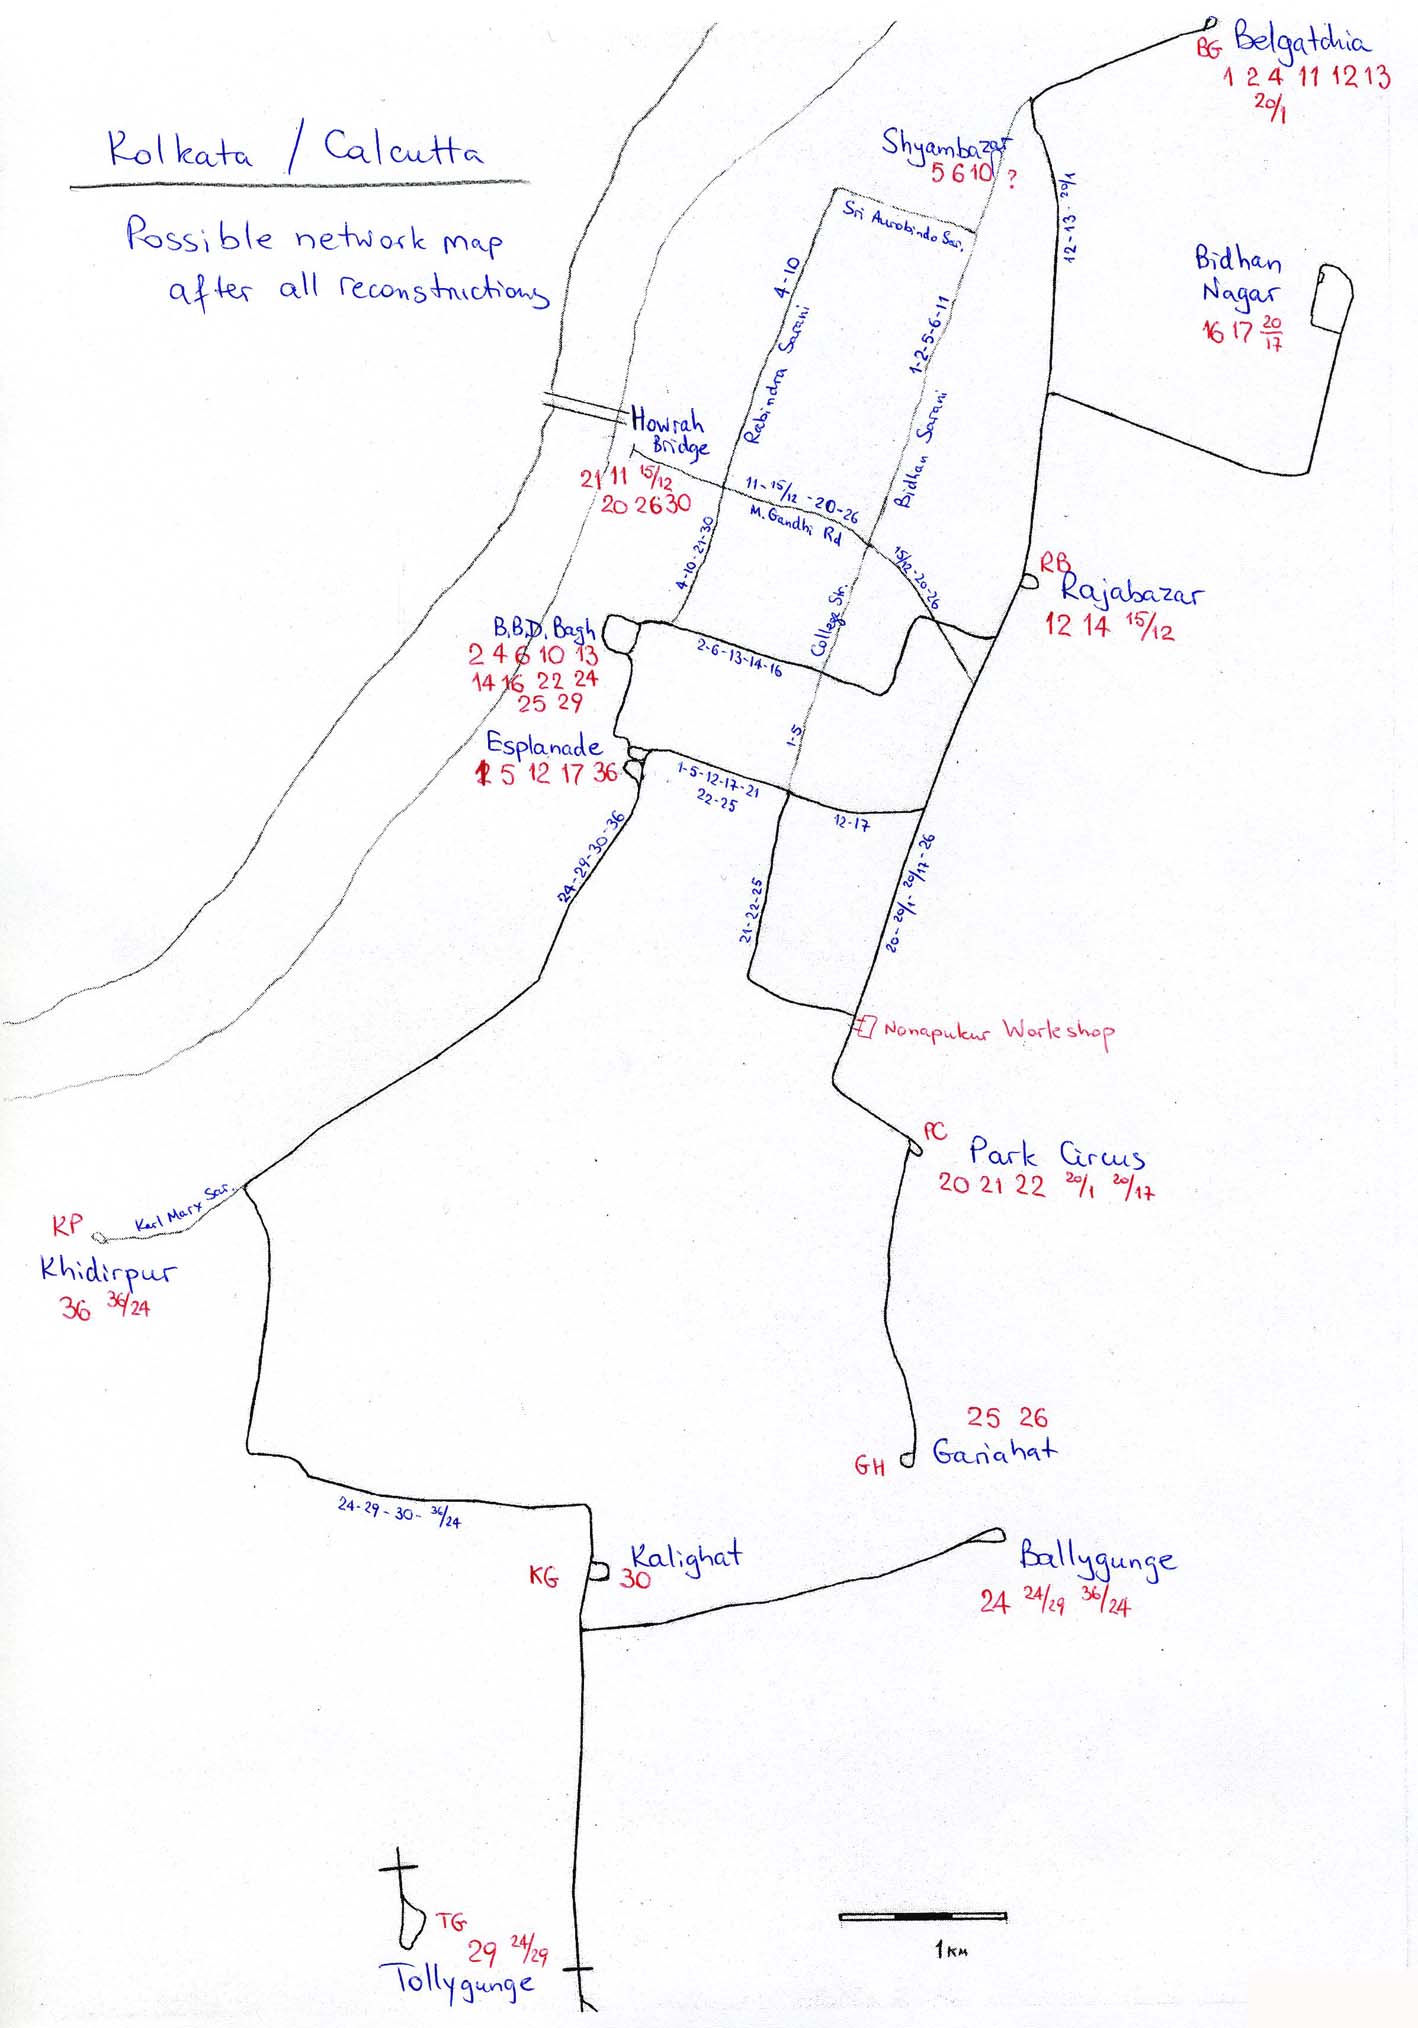 BG Belgatchia
1 2 4 11 12 13
20/1
Kolkata / Calcutta
Possible network map
after all reconstructions
Shyambazar
5 6 10 ?
12-13-20/1
Sri Aurobindo Sar.
Bidhan
Nagar
16 17 20/17
4-10
Rabindra Sarani
1-2-5-6-11
Bidhan Sarani
Howrah
Bridge
21 11 15/12
20 26 30
11-15/12-20-26
M. Gandhi Rd
15/12-20-26
4-10-21-30
College Str.
RB
Rajabazar
12 14 15/12
B.B.D. Bagh
2 4 6 10 13
14 16 22 24
25 29
2-6-13-14-16
1-5
Esplanade
1 5 12 17 36
1-5-12-17-21
22-25
12-17
24-29-30-36
21-22-25
20-20/1-20/17-26
Nonapukur Workshop
PC
Park Circus
20 21 22 20/1 20/17
Karl Marx Sar.
KP
Khidirpur
36 36/24
25 26
GH Gariahat
24-29-30-36/24
KG
Kalighat
30
Ballygunge
24 24/29 36/24
TG
29 24/29
Tollygunge
1 KM